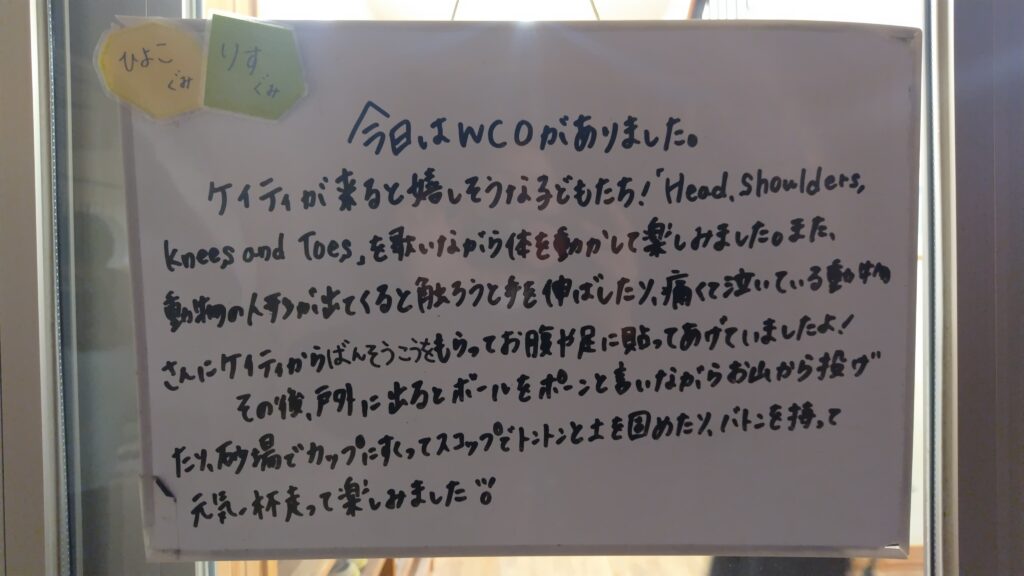 ひよこぐみ
りすぐみ
今日はWCOがありました。
ケイティが来ると嬉しそうな子どもたち!「Head, Shoulders,
knees and Toes」を歌いながら体を動かして楽しみました。また、
動物の人形が出てくると触ろうと手を伸ばしたり、痛くて泣いている動物
さんにケイティからばんそうこうをもらってお腹や足に貼ってあげていましたよ!
その後、戸外に出るとボールをポーンと言いながらお山から投げ
たり、砂場でカップにすくってスコップでトントンと土を固めたり、バトンを持って
元気一杯走って楽しみました